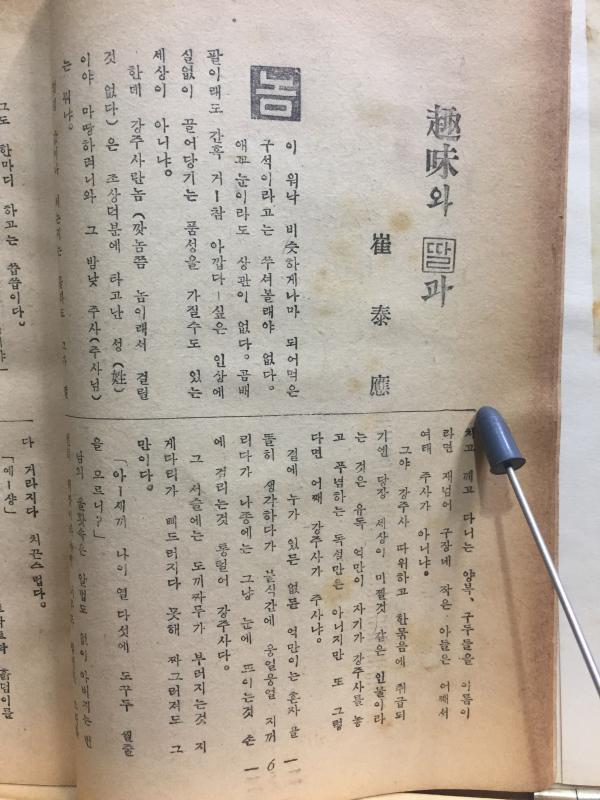 趣味와 딸과
崔泰應
놈
이 워낙 비슷하게나마 되어먹은
구석이라고는 쑤셔볼래야 없다。
애꾸눈이라도 상관이 없다。곰배
팔이래도 간혹 거ー참 아깝다ー싶은 인상에
실없이 끌어당기는 품성을 가질수도 있는
세상이 아니냐。
한데 강주사란놈 (깟놈쯤 놈이래서 걸릴
것 없다) 은 조상덕분에 타고난 성 (姓)
이야 마땅하려니와 그 밤낮 주사 (주사님)
는 뭐냐。
치고 께고 다니는 양복、구두들을 이름이
라면 재넘어 구장네 작은 아들은 어째서
여태 주사가 아니냐。
그야 강주사 따위하고 한묶음에 취급되
기엔 당장 세상이 미쩔것 같은 인물이라
는 것은 유독 억만이 자기가 강주사를 놓
고 푸념하는 독설만은 아니지만 또 그렇
다면 어째 강주사가 주사냐。
곁에 누가 있든 없든 억만이는 혼자 골
돌히 생각하다가 불식간에 웅얼웅얼 지꺼
리다가 나종에는 그냥 눈에 뜨이는것 손
에 걸리는것 통털어 강주사다。
그 서슬에는 도끼짜루가 부러지는것 지
게다리가 삐드러지다 못해 짜그러저도 그
만이다。
「아ー새끼 나이 열 다섯에 도꾸두 쉴줄
을 모르니?」
남의 울홧속은 알법도 없이 아버지는 번
— 6 —
그도 한마디 하고는 씁씁이다。
다 거라지다 치끈스럽다。
「에ー샹」